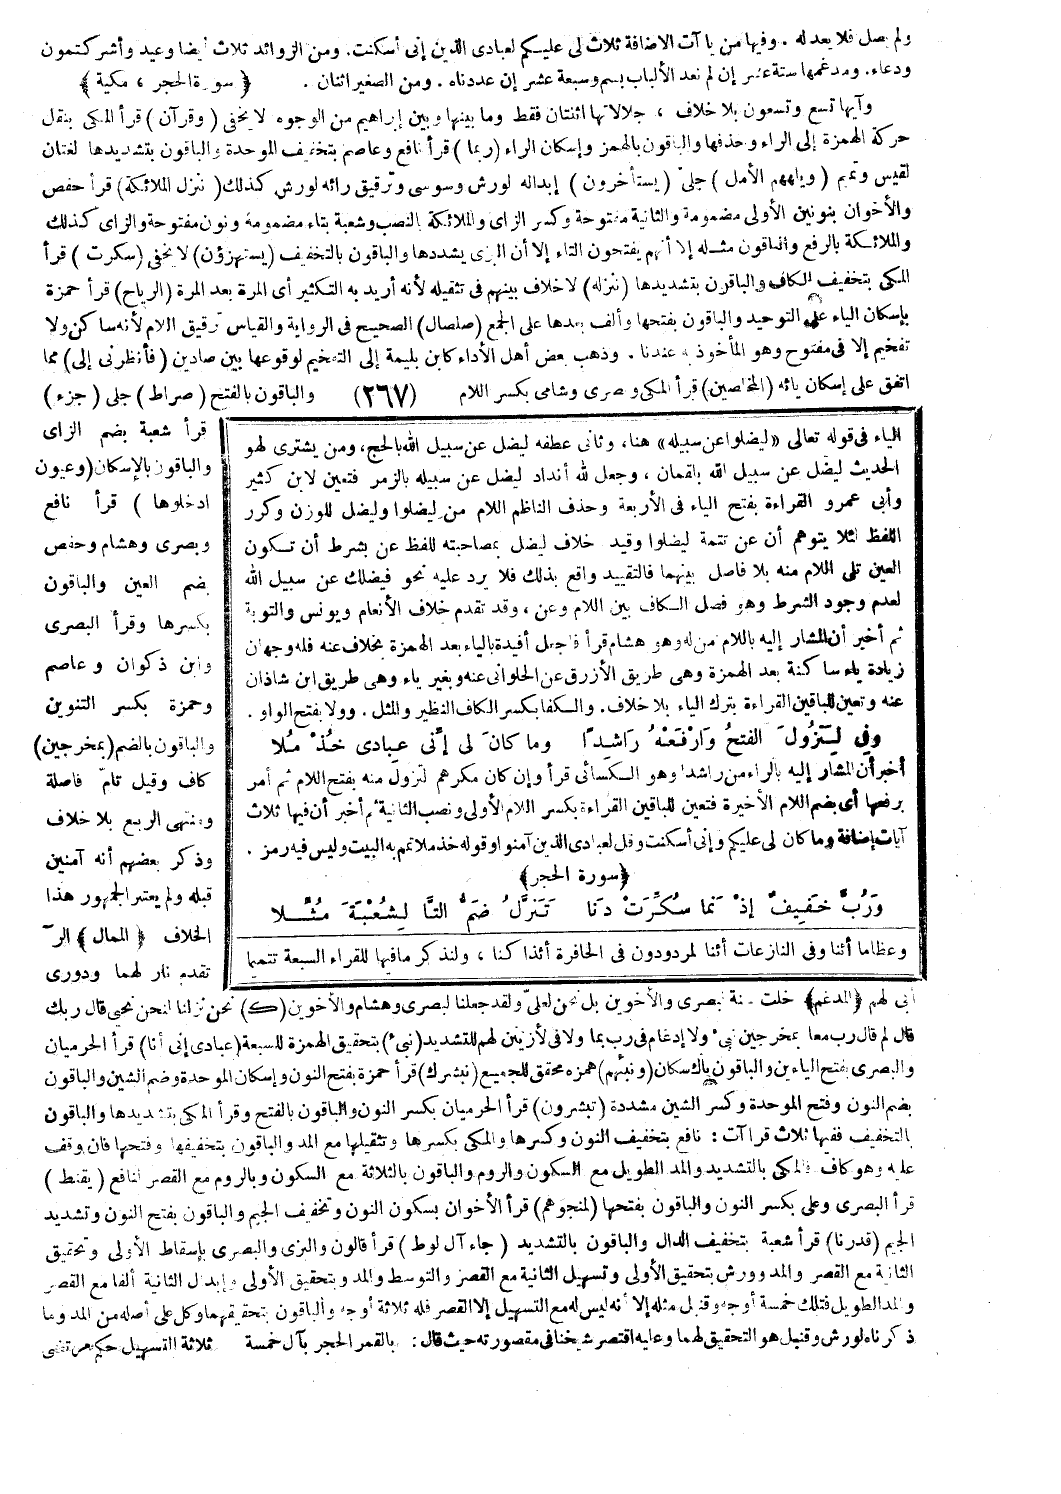 ولم يصل فلا يعد له . وفيها من ياآت الاضافة ثلاث لى عليكم لعبادى الذين إنى أسكنت. ومن الزوائد ثلاث أيضا وعيد وأشركتمون
ودعاء. ومدغمها ستة عشر إن لم نعد الألباب بسم وسبعة عشر إن عددناه . ومن الصغير اثنان . ﴿ سورة الحجر ، مكية ﴾
وآيها تسع وتسعون بلا خلاف ، جلالاتها اثنتان فقط وما بينها وبين إبراهيم من الوجوه لا يخفى ( وقرآن ) قرأ المكى بنقل
حركة الهمزة إلى الراء وحذفها والباقون بالهمز وإسكان الراء (ربما ) قرأ نافع وعاصم بتخفيف الموحدة والباقون بتشديدها لغتان
لقيس وتميم ( ويلههم الأمل ) جلىّ ( يستأخرون ) إبداله لورش وسوسى وترقيق رائه لورش كذلك ( ننزل الملائكة) قرأ حفص
والأخوان بنونين الأولى مضمومة والثانية مفتوحة وكسر الزاى والملائكة بالنصب وشعبة بتاء مضمومة ونون مفتوحة والزاى كذلك
والملائكة بالرفع والباقون مثله إلا أنهم يفتحون التاء إلا أن البزى يشددها والباقون بالتخفيف (يستهزؤن) لا يخفى (سكرت ) قرأ
المكى بتخفيف الكاف والباقون بتشديدها ( ننزله) لا خلاف بينهم فى تثقيله لأنه أريد به التكثير أى المرة بعد المرة (الرياح) قرأ حمزة
بإسكان الياء على التوحيد والباقون بفتحها وألف بعدها على الجمع (صلصال) الصحيح فى الرواية والقياس ترقيق اللام لأنه ساكن ولا
تفخيم إلا فى مفتوح وهو المأخوذ به عندنا . وذهب بعض أهل الأداء كابن بليمة إلى التفخيم لوقوعها بين صادين ( فأنظرنى إلى) مما
اتفق على إسكان يائه (المخلصين) قرأ المكى وبصرى وشامى بكسر اللام (٢٦٧) والباقون بالفتح ( صراط ) جلى ( جزء )
قرأ شعبة بضم الزاى
والباقون بالإسكان (وعيون
ادخلوها ) قرأ نافع
وبصرى وهشام وحفص
بضم العين والباقون
بكسرها وقرأ البصرى
وابن ذكوان وعاصم
وحمزة بكسر التنوين
والباقون بالضم (بمخرجين)
كاف وقيل تامّ فاصلة
ومنتهى الربع بلا خلاف
وذكر بعضهم أنه آمنين
قبله ولم يعتبر الجمهور هذا
الخلاف ﴿ الممال ﴾ الرَ
تقدم نار لهما ودورى
الياء فى قوله تعالى «ليضلوا عن سبيله» هنا، وثانى عطفه ليضل عن سبيل الله بالحج، ومن يشترى لهو
الحديث ليضل عن سبيل الله بلقمان ، وجعل لله أنداد ليضل عن سبيله بالزمر فتعين لابن كثير
وأبى عمرو القراءة بفتح الياء فى الأربعة وحذف الناظم اللام من ليضلوا وليضل للوزن وكرر
اللفظ لئلا يتوهم أن عن تتمة ليضلوا وقيد خلاف ليضل بمصاحبته للفظ عن بشرط أن تكون
العين تلى اللام منه بلا فاصل بينهما فالتقييد واقع بذلك فلا يرد عليه نحو فيضلك عن سبيل الله
لعدم وجود الشرط وهو فصل الكاف بين اللام وعن ، وقد تقدم خلاف الأنعام ويونس والتوبة
ثم أخبر أن المشار إليه باللام من له وهو هشام قرأ فاجعل أفيدة بالياء بعد الهمزة بخلاف عنه فله وجهان
زيادة ياء ساكنة بعد الهمزة وهى طريق الأزرق عن الحلوانى عنه وبغير ياء وهى طريق ابن شاذان
عنه وتعين للباقين القراءة بترك الياء بلا خلاف. والكفا بكسر الكاف النظير والمثل . وولا بفتح الواو .
وفى لِتَزُولَ الفتحُ وَارْفَعْهُ رَاشِداً وما كانَ لى إنّى عبادى خُذْ مُلا
أخبر أن المشار إليه بالراء من راشدا وهو الكسائى قرأ وإن كان مكرهم لتزول منه بفتح اللام ثم أمر
برفعها أى بضم اللام الأخيرة فتعين للباقين القراءة بكسر اللام الأولى ونصب الثانية ثم أخبر أن فيها ثلاث
آيات إضافة وما كان لى عليكم وإنى أسكنت وقل لعبادى الذين آمنوا وقوله خذ ملا تمم به البيت وليس فيه رمز .
﴿ سورة الحجر ﴾
وَرُبَّ خَفِيفٌ إذْ نَما سُكِّرَتْ دَنَا تَنَزَّلُ ضَمُّ التَّا لِشُعْبَةَ مُثِّلا
وعظاما أئنا وفى النازعات أئنا لمردودون فى الحافرة أئذا كنا ، ولنذكر مافيها للقراء السبعة تتميما
أبى لهم ﴿المدغم﴾ خلت سنة لبصرى والأخوين بل نحن لعلىّ ولقد جعلنا لبصرى وهشام والأخوين (ك) نحن نزلنا لنحن نحيى قال ربك
قال لم قال رب معا بمخرجين نبئ ولا إدغام فى رب بما ولا فى لأزينن لهم للتشديد (نبئ) بتحقيق الهمزة للسبعة (عبادى إنى أنا) قرأ الحرميان
والبصرى بفتح الياءين والباقون بالاسكان (ونبئهم) همزه محقق للجميع (نبشرك) قرأ حمزة بفتح النون وإسكان الموحدة وضم الشين والباقون
بضم النون وفتح الموحدة وكسر الشين مشددة (تبشرون) قرأ الحرميان بكسر النون والباقون بالفتح وقرأ المكى بتشديدها والباقون
بالتخفيف ففيها ثلاث قراآت : نافع بتخفيف النون وكسرها والمكى بكسرها وتثقيلها مع المد والباقون بتخفيفها وفتحها فان وقف
عليه وهو كاف فالمكى بالتشديد والمد الطويل مع السكون والروم والباقون بالثلاثة مع السكون وبالروم مع القصر لنافع ( يقنط )
قرأ البصرى وعلى بكسر النون والباقون بفتحها (لمنجوهم) قرأ الأخوان بسكون النون وتخفيف الجيم والباقون بفتح النون وتشديد
الجيم (قدرنا) قرأ شعبة بتخفيف الدال والباقون بالتشديد ( جاء آل لوط ) قرأ قالون والبزى والبصرى بإسقاط الأولى وتحقيق
الثانية مع القصر والمد وورش بتحقيق الأولى وتسهيل الثانية مع القصر والتوسط والمد وبتحقيق الأولى وإبدال الثانية ألفا مع القصر
والمد الطويل فتلك خمسة أوجه وقنبل مثله إلا أنه ليس له مع التسهيل إلا القصر فله ثلاثة أوجه والباقون بتحقيقهما وكل على أصله من المد وما
ذكرناه لورش وقنبل هو التحقيق لهما وعليه اقتصر شيخنا فى مقصورته حيث قال : بالقمر الحجر بآل خمسة ثلاثة التسهيل حكم مرتضى